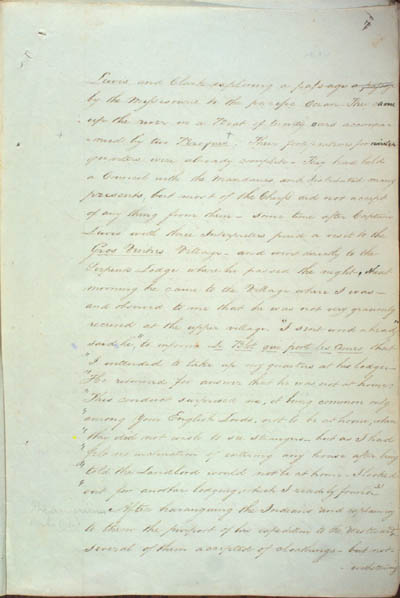 7
Lewis and Clark exploring a passage
by the Missouri to the pacific Ocean They came
up the river in a Boat of twenty oars accompa-
nied by two Perogues + Their fortifications for winter
quarters were already complete – They had held
a Council with the Mandanes, and distributed many
presents, but most of the Chiefs did not accept
of any thing from them – Some time after Captain
Lewis with three Interpreters paid a visit to the
Gros Ventres Village – and went directly to the
Serpents Lodge where he passed the night, next
morning he came to the Village where I was –
and observed to me that he was not very graciously
received at the upper village "I sent word a head
said he" to inform Le Blet qui porte les Cornes that
"I intended to take up my quarters at his lodge –
"He returned for answer that he was not at home,
"This conduct surprised me, it being common only
"among Your English Lords, not to be at home, when
"they did not wish to see strangers. but as I had
"felt no inclination of entering any house after being
"told the Landlord would not be at home. I looked
"out for another lodging, which I readily found"
After haranguing the Indians and explaining
to them the purport of his expedition to the Westward,
several of them accepted of cloathing – but not-
withstanding